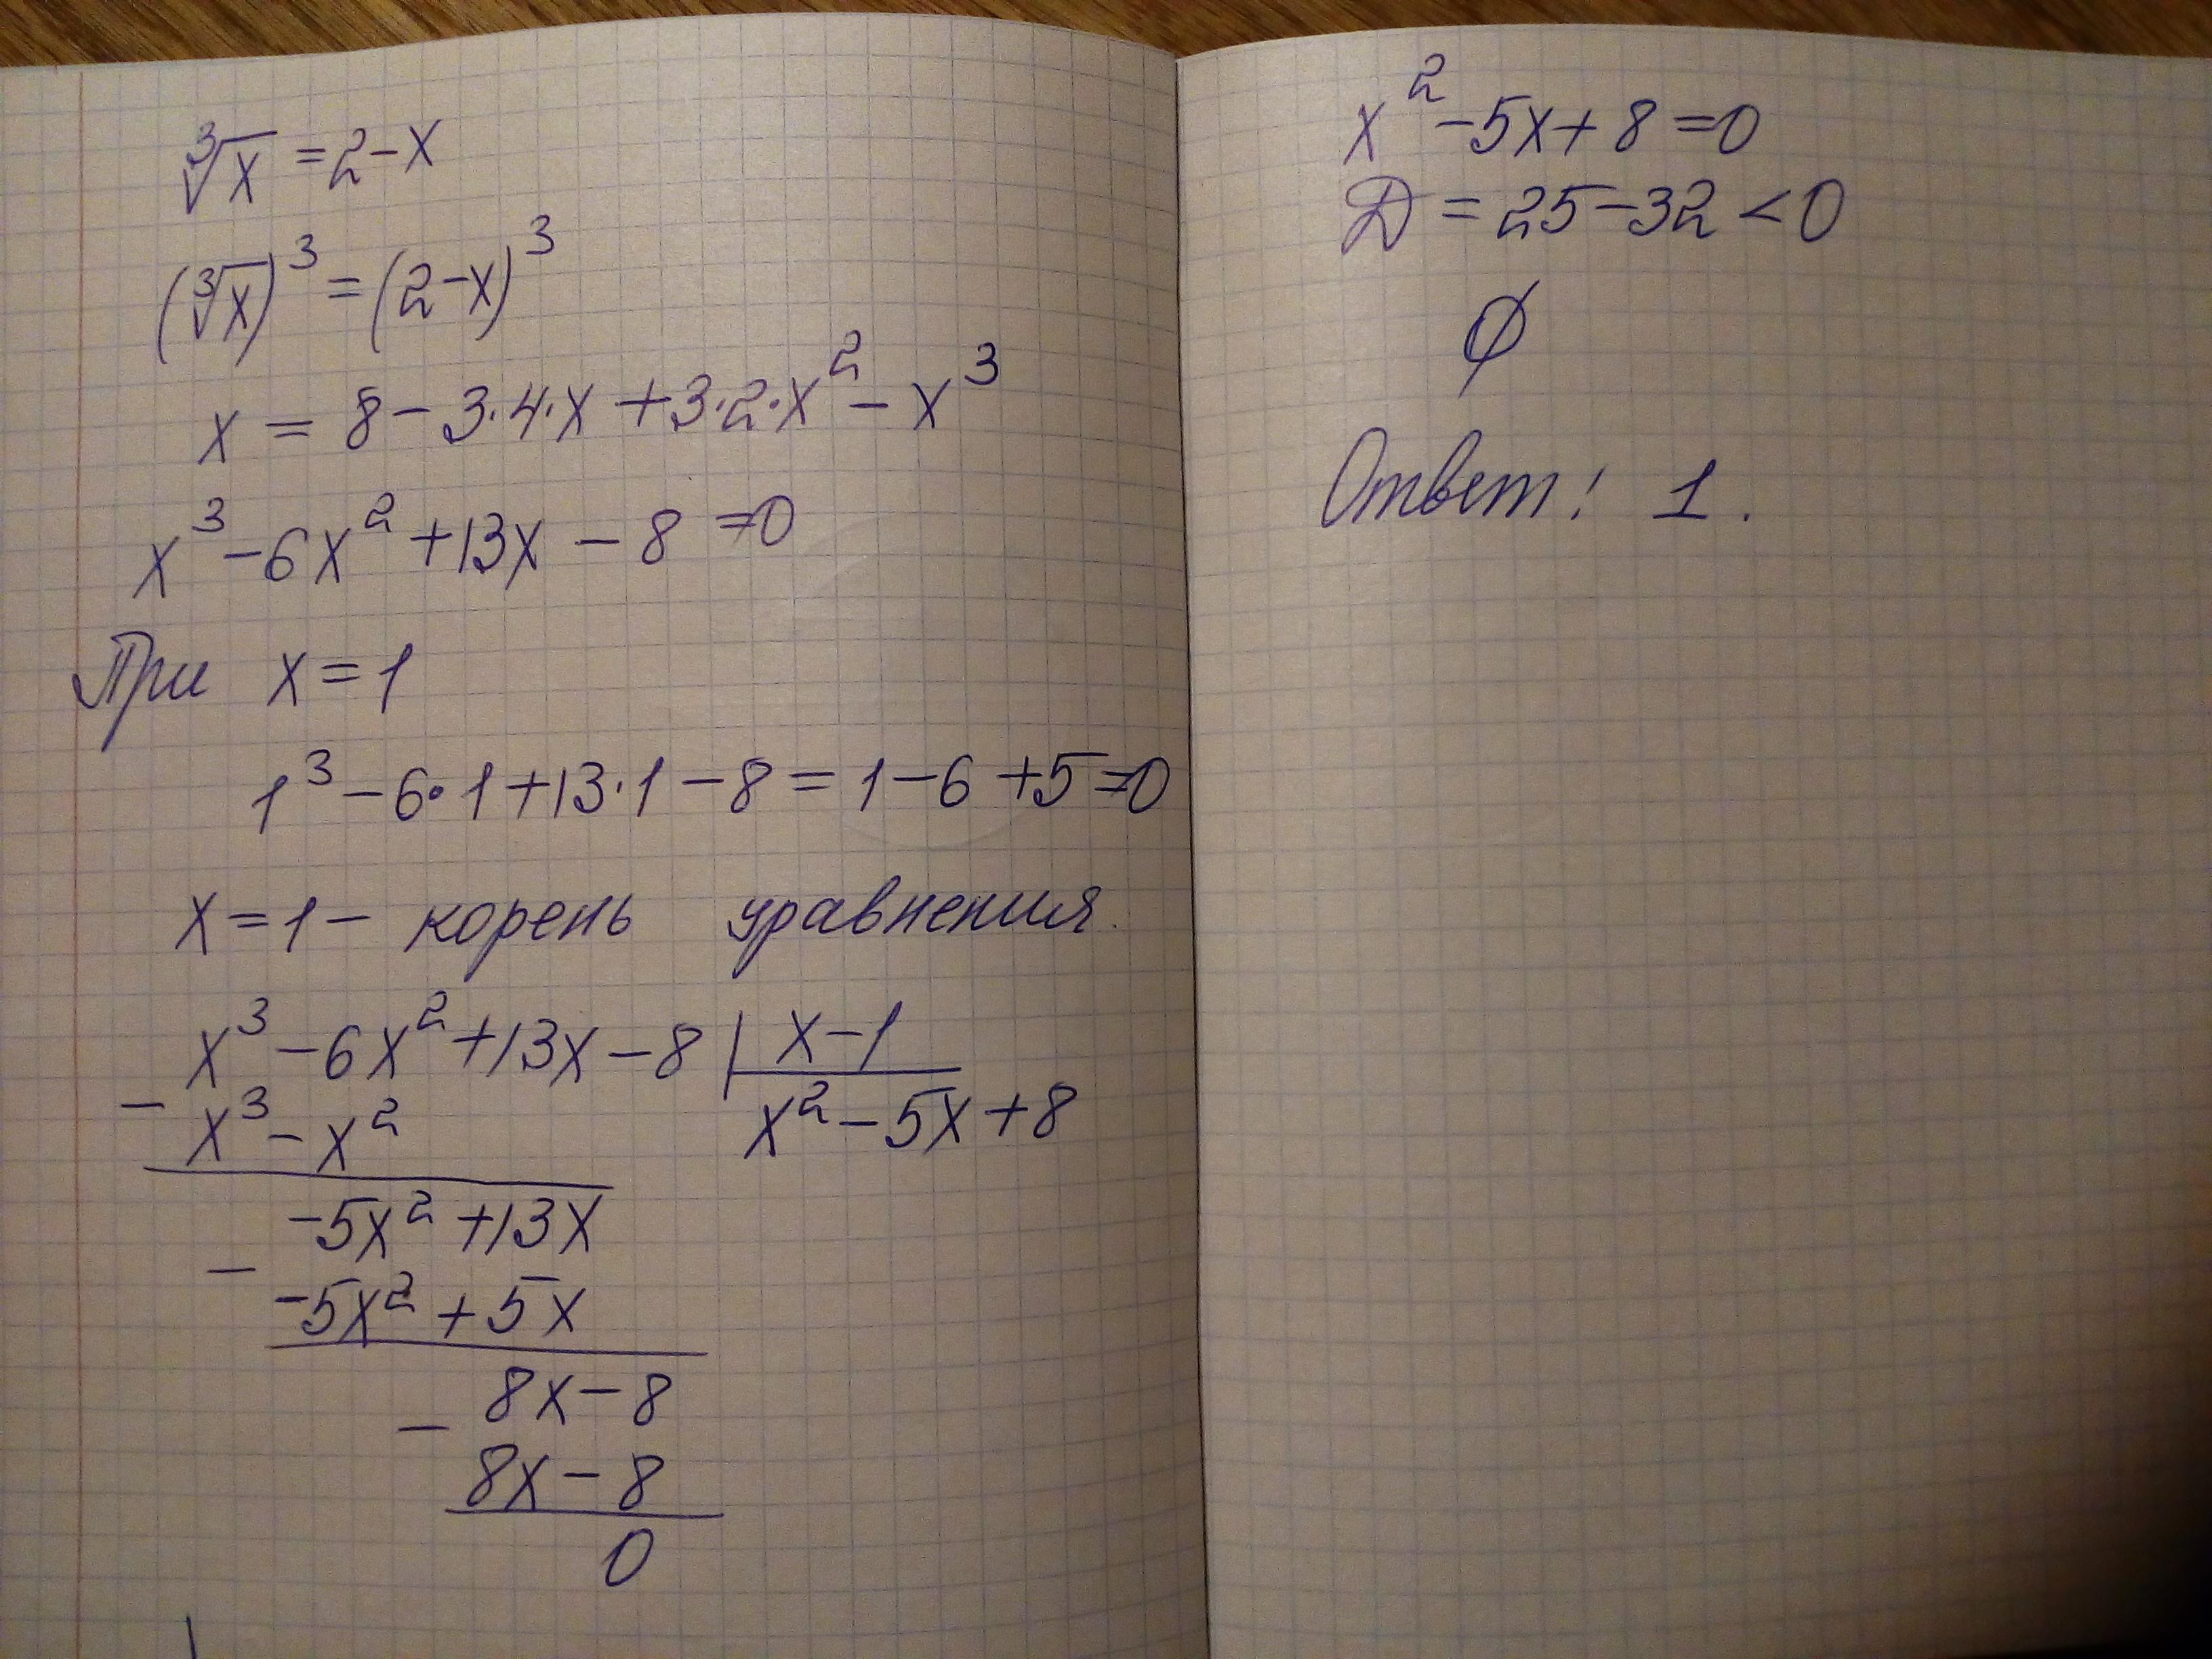 ∛x = 2 - x
(∛x)³ = (2 - x)³
x = 8 - 3·4·x + 3·2·x² - x³
x³ - 6x² + 13x - 8 = 0
При x = 1
1³ - 6·1 + 13·1 - 8 = 1 - 6 + 5 = 0
x = 1 - корень уравнения.
x³ - 6x² + 13x - 8 | x - 1
- x³ - x² x² - 5x + 8
-5x² + 13x
- -5x² + 5x
8x - 8
- 8x - 8
0
x² - 5x + 8 = 0
D = 25 - 32 < 0
∅
Ответ: 1.